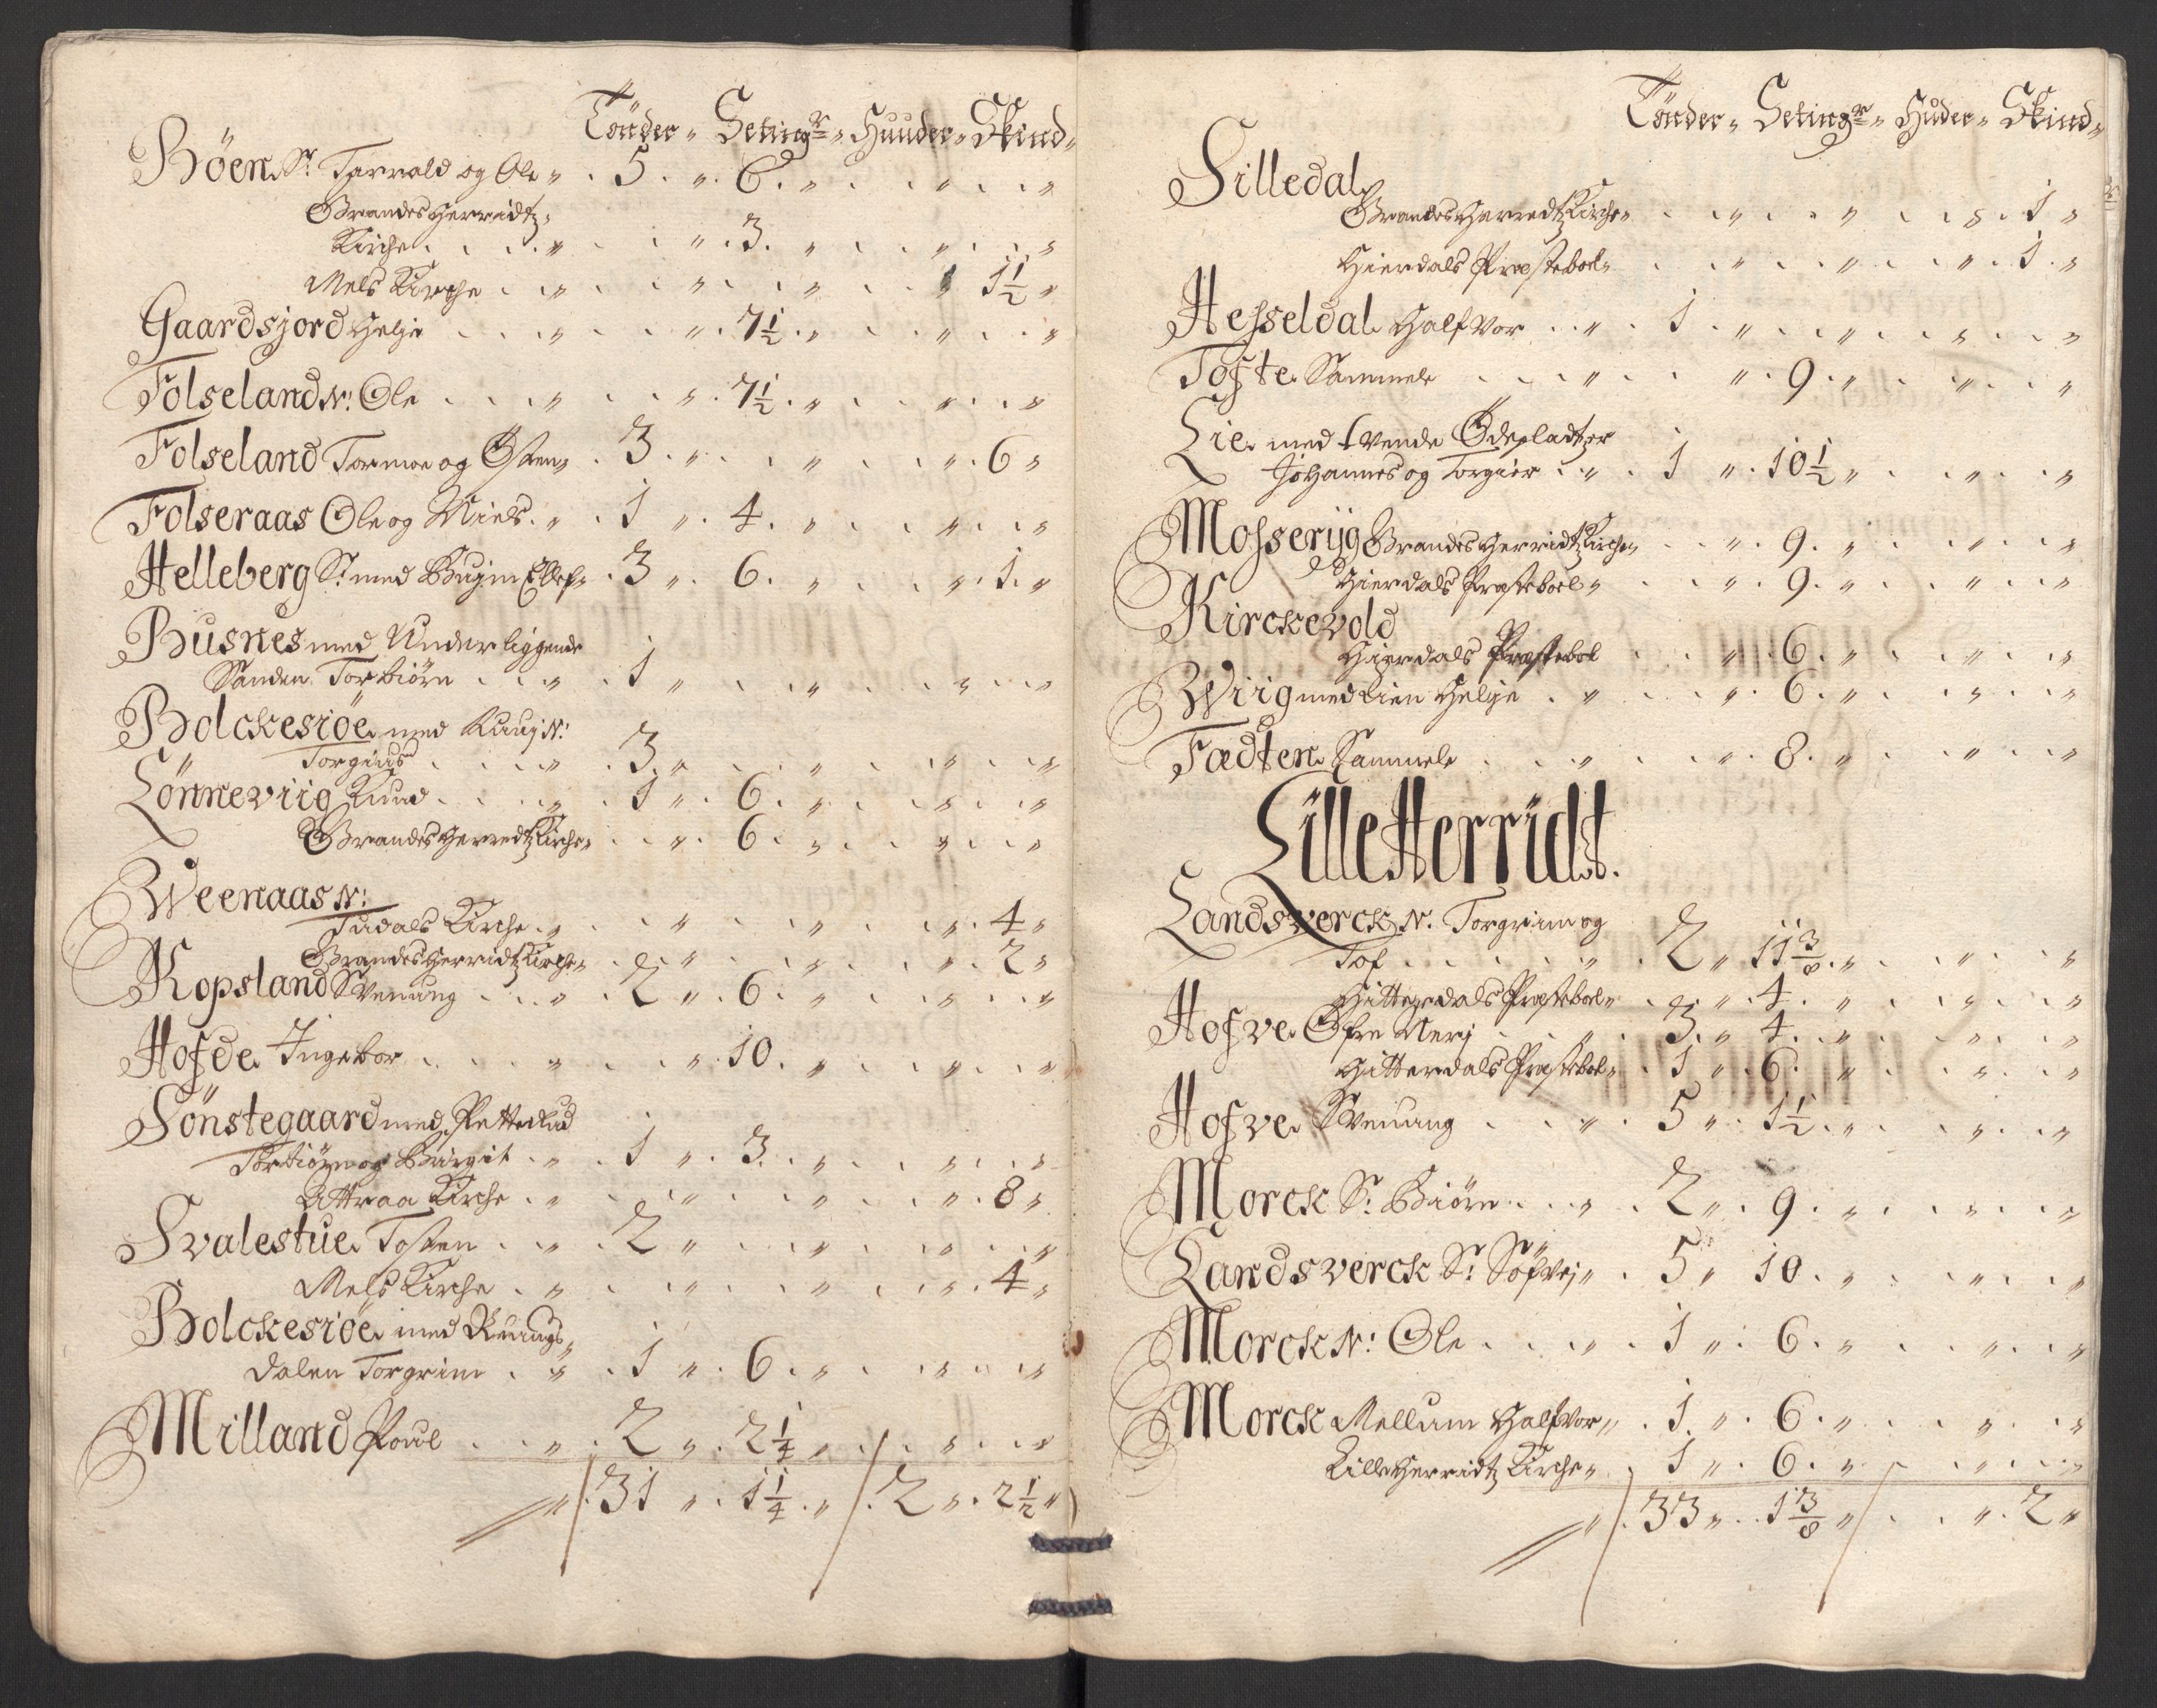 Tönder „ Seting.r „ Huuder „ Skind „
Böen S: Tarvald og Ole „ 5 „ 6 „ „ „
Grandesherridtz
Kirche „ „ 3 „ „ „
Mels Kirche „ „ „ „ 1½ „
Gaardsjord Helje „ „ 7½ „ „ „
Folseland N: Ole „ „ 7½ „ „ „
Folseland Tormoe og Østen „ 3 „ „ „ 6 „
Folseraas Ole og Niels „ 1 „ 4 „ „ „
Helleberg S: med Bugin Ellef „ 3 „ 6 „ „ 1 „
Busnes med Underliggende
Sanden Torbiörn „ 1 „ „ „ „
Bolckesiöe med Ruuj N:
Torgius „ 3 „ „ „ „
Lönneviig Knud „ 1 „ 6 „ „ „
Grandesherredtz Kirche „ „ 6 „ „ „
Weenaas N:
Tudals Kirche „ „ „ „ 4 „
Grandesherridtz Kirche „ „ „ „ 2 „
Kopsland Svenung „ 2 „ 6 „ „ „
Hofde Ingebor „ „ 10 „ „ „
Sönstegaard med Petterlud
Torbiörn og Birgit „ 1 „ 3 „ „ „
Attraa Kirche „ „ „ „ 8 „
Svalestue Tosten „ 2 „ „ „ „
Mels Kirche „ „ „ „ 4 „
Bolckesiöe med Ruungs
dalen Torgrim „ 1 „ 6 „ „ „
Milland Poul „ 2 „ 2¼ „ „ „
„ 31 „ 1¼ „ 2 „ 2½ „
Tönder „ Seting.r „ Huder „ Skind „
Silledal
Grandesherredtz Kirche „ „ „ „ 1 „
Hierdals Præstebol „ „ „ „ 1 „
Hesseldal Halfvor „ 1 „ „ „ „
Tofte Sammele „ „ 9 „ „ „
Lie med tvende Ödepladtzer
Johannes og Torgier „ 1 „ 10½ „ „ „
Mosserijg Grandesherridtz Kirche „ „ 9 „ „ „
Hierdals Præstebol „ „ 9 „ „ „
Kirckevold
Hierdals Præstebol „ 6 „ „ „
Wiig med Lien Helje „ „ 6 „ „ „
Fædten Sammele „ „ 8 „ „ „
Lille Herridt.
Landsverck N. Torgrim og
Tof „ 2 „ 11⅜ „ „ „
Hitterdals Præstebol „ „ 4 „ „ „
Hofve Øfre Nerj „ 3 „ 4 „ „ „
Hitterdals Præstebol „ 1 „ 6 „ „ „
Hofve Svenung „ 5 „ 1½ „ „ „
Morck S: Biörn „ 2 „ 9 „ „ „
Landsverck S: Söfrej „ 5 „ 10 „ „ „
Morck N: Ole „ 1 „ 6 „ „ „
Morck Mellum Halfvor „ 1 „ 6 „ „ „
Lilleherridtz Kirche „ 1 „ 6 „ „ „
„ 33 „ 1⅜ „ „ 2 „